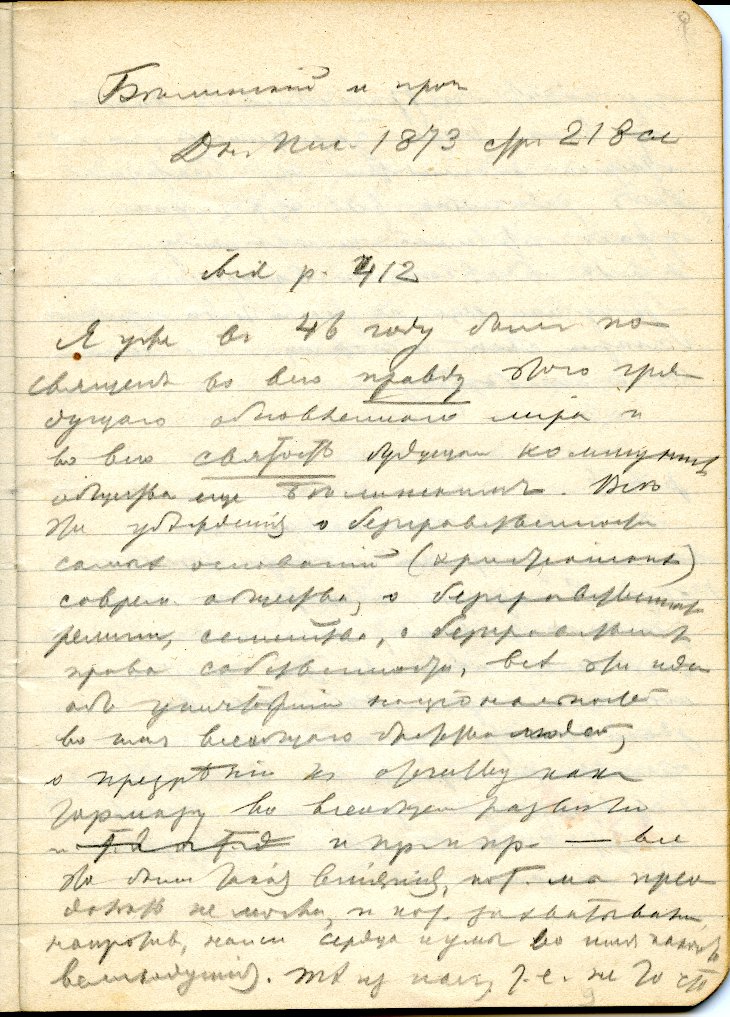 Бѣлинскiй и проч
Дн. Пис. 1873 стр. 218 сл
ibid p. 412
Я уже въ 46 году былъ по-
священъ во всю правду этого гря-
дущаго обновленнаго мiра и
во всю святость будущаго коммунист
общества еще Бѣлинскимъ. Всѣ
эти убѣжденiя о безнравственности
самыхъ основанiй (христiанскихъ)
соврем. общества, о безнравственности
религiи, семейства, о безнравственности
права собственности, всѣ эти идеи
объ уничтоженiи нацiональностей
во имя всеобщаго братства людей,
о презрѣнiи къ отечеству какъ
тормазу во всеобщемъ развитiи
и т. д. и т. д и пр и пр — все
это были такiя влiянiя, кот. мы прео-
долѣть не могли, и кот. захватывали
напротивъ, наши сердца и умы во имя какого-то
великодушiя. тѣ изъ насъ, т. е. не то что